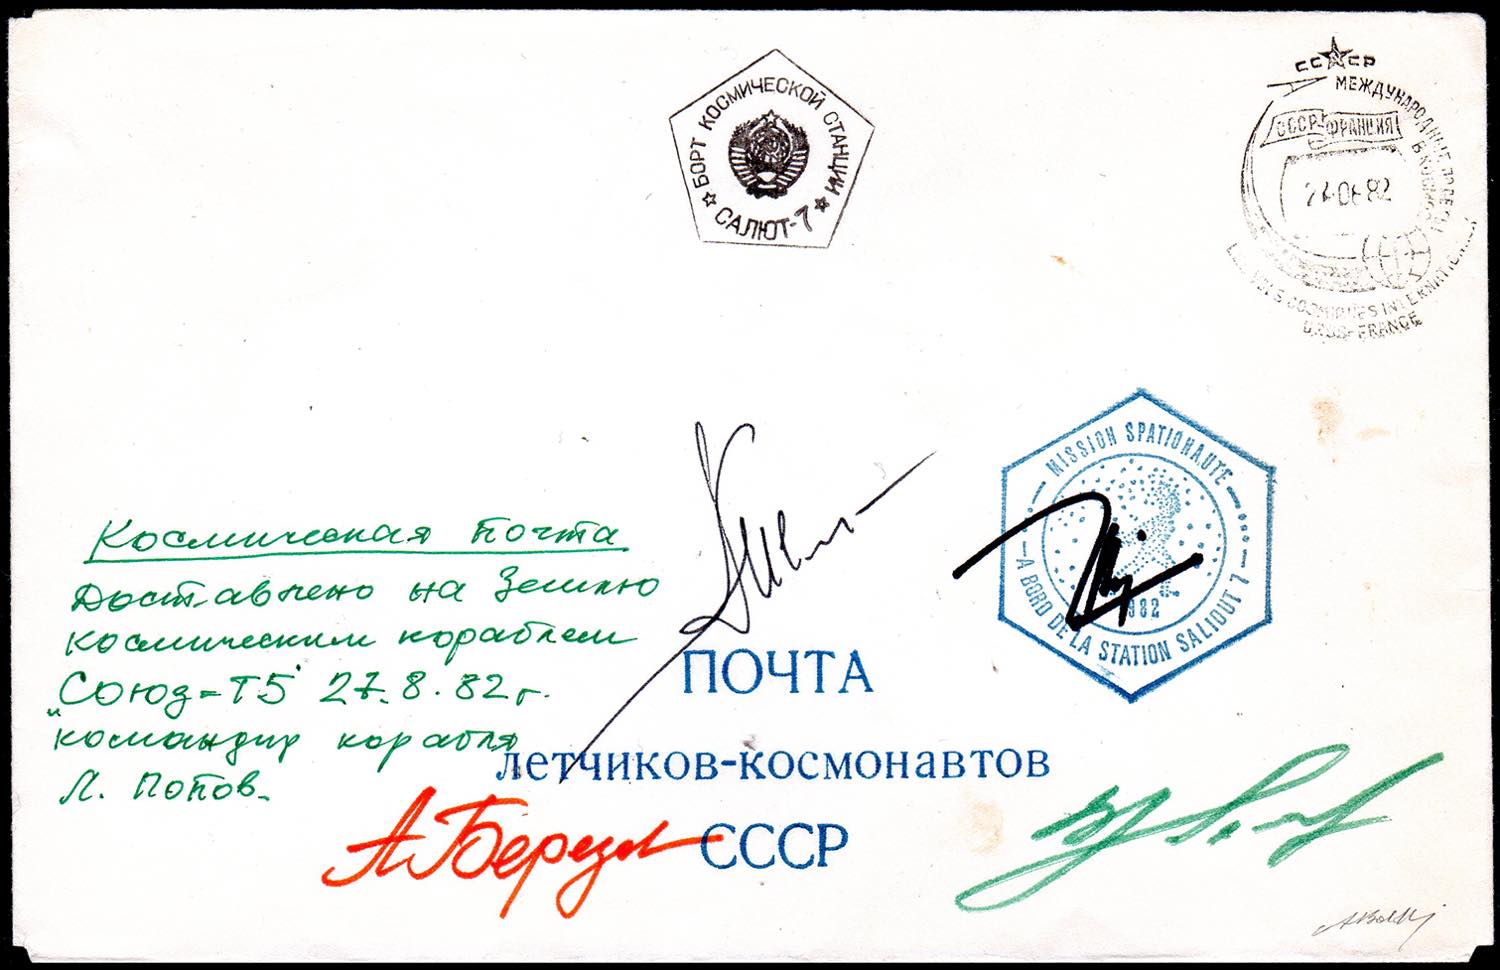 БОРТ КОСМИЧЕСКОЙ СТАНЦИИ
САЛЮТ-7
СССР
МЕЖДУНАРОДНЫЕ ПОЛЕТЫ
СССР-ФРАНЦИЯ
82
VOLS COSMIQUES INTERNATIONAUX
URSS-FRANCE
MISSION SPATIONAUTE
1982
A BORD DE LA STATION SALIOUT 7
Космическая почта
Доставлено на Землю
космическим кораблем
"Союз-Т5" 27.8.82г.
командир корабля
Л. Попов.
ПОЧТА
летчиков-космонавтов
СССР
А Березо